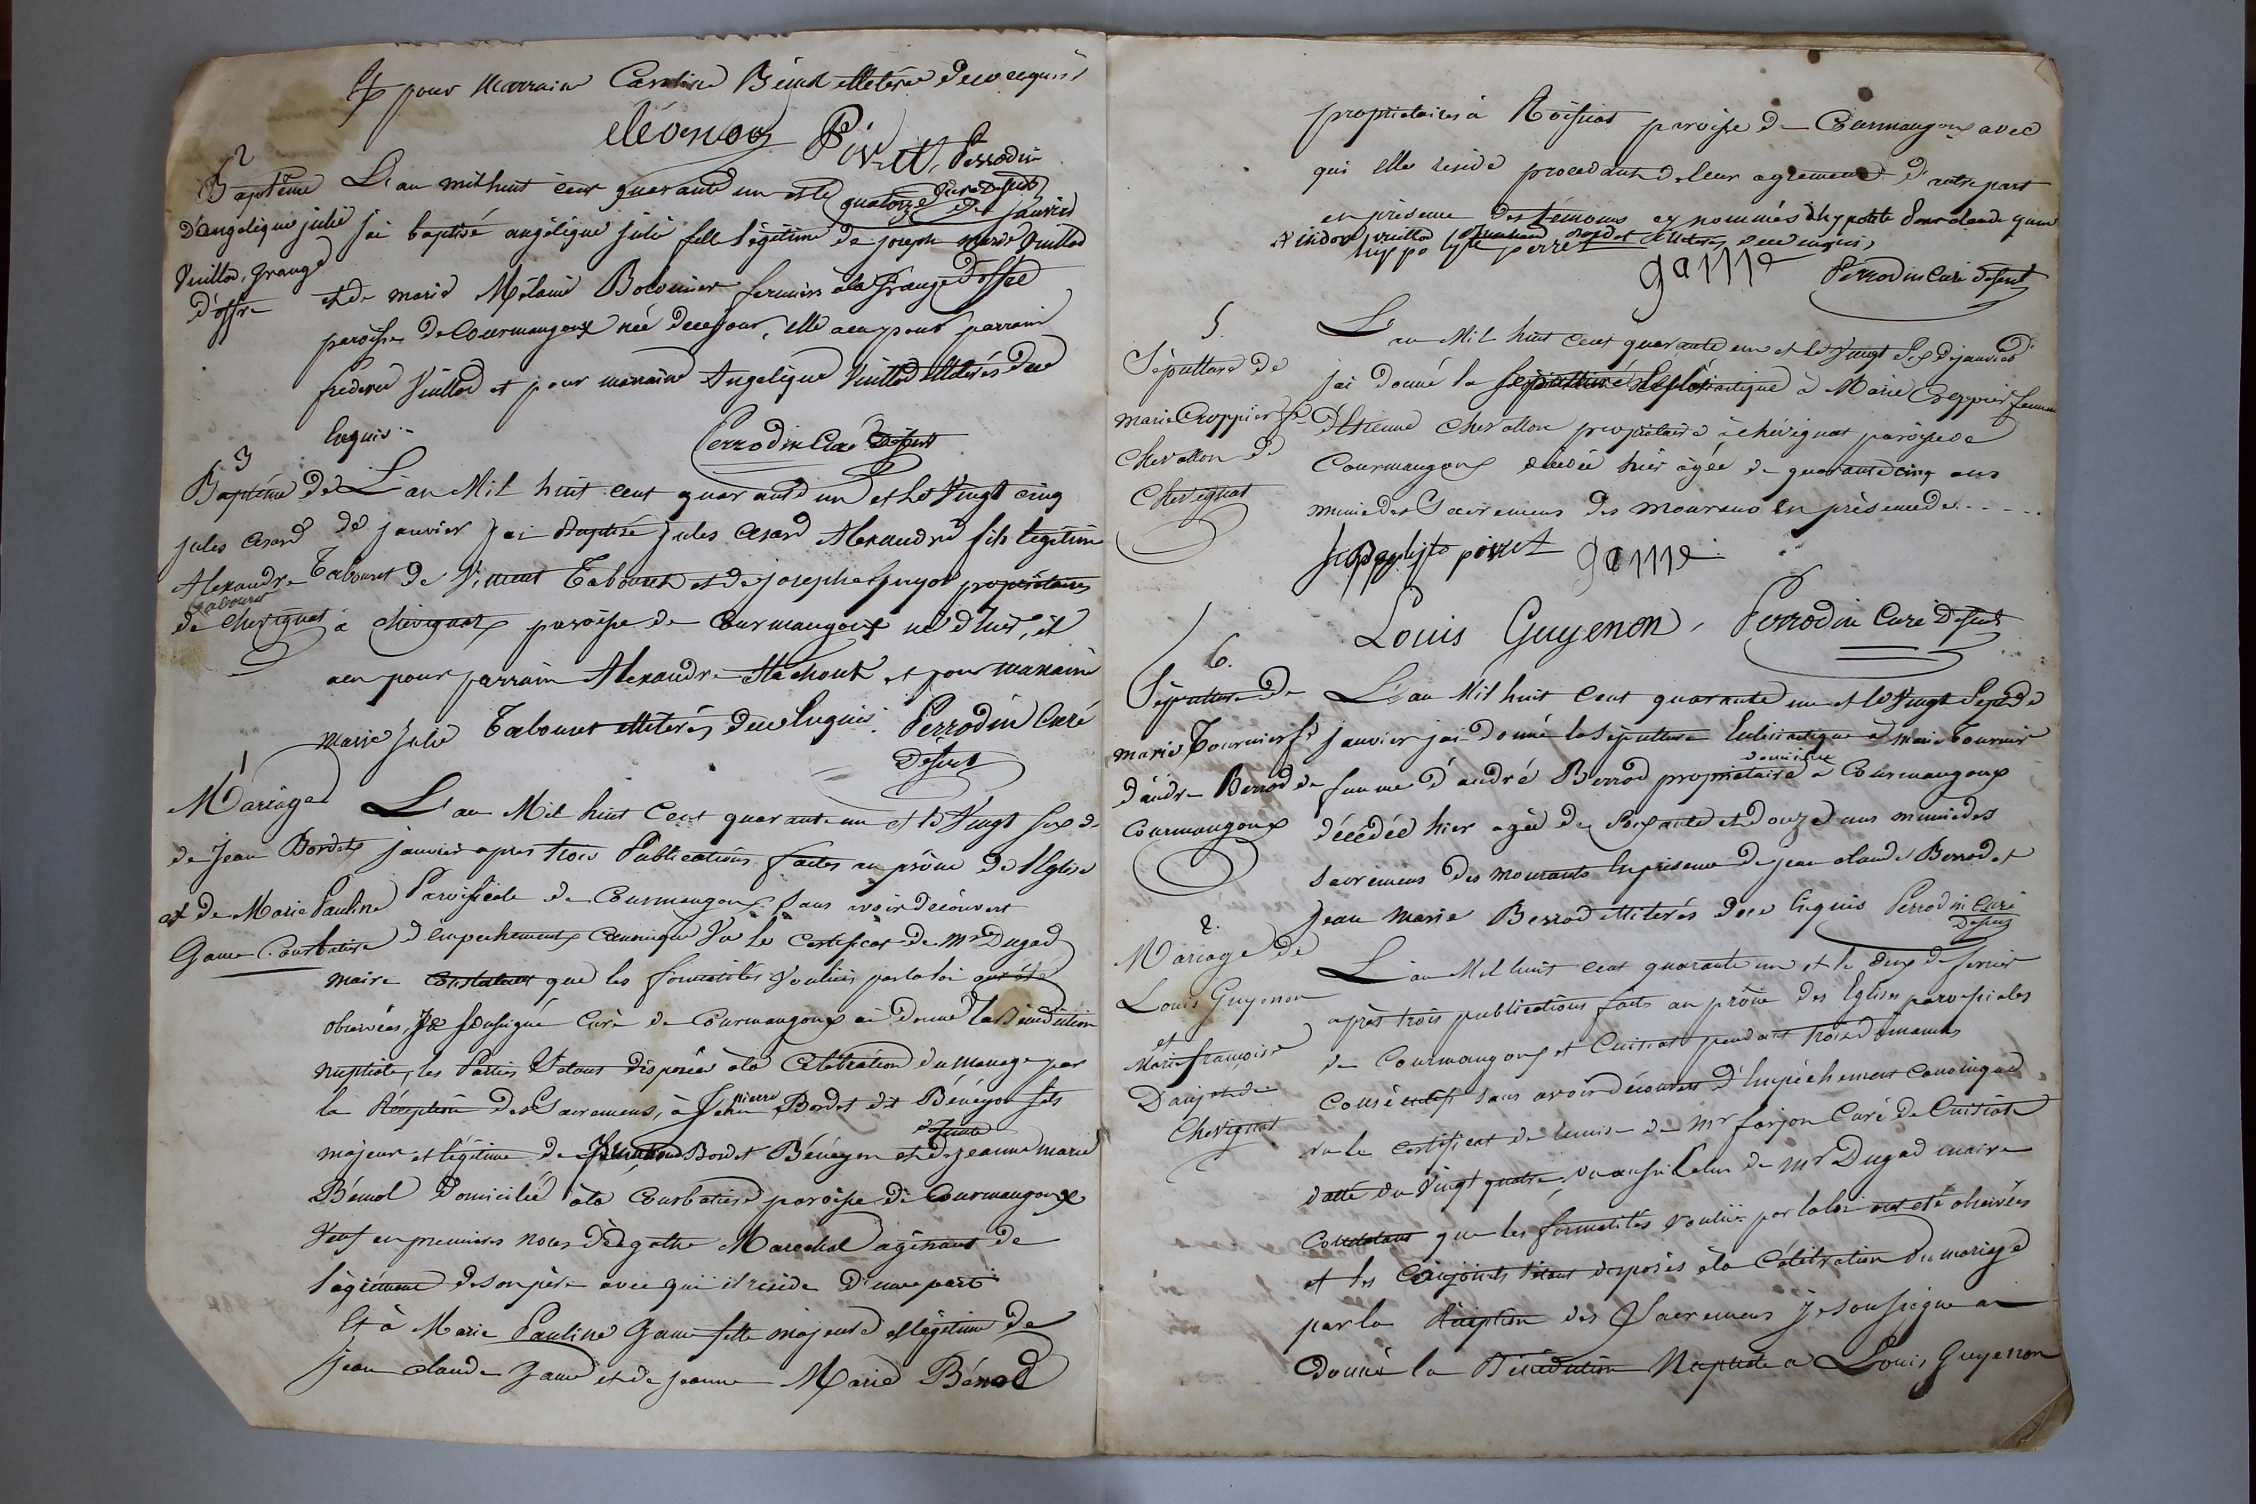 et pour marraine Caroline Bénod illetérée de ce requis
éléonor Pivet, Perrodin
curé desert
2
Baptême
D'angelique julie
Vuillod, grange
D'offre
L'an mil huit cent quarante un et le quatorze de janvier
j'ai baptisé angélique julie fille légitime de joseph marie Vuillod
et de marie Mélanie Bolomier fermiers à la Grange D'offre
paroisse de Courmangoux née de ce jour, elle a eu pour parrain
frederic Vuillod et pour marraine Angelique Vuillod illetérés de ce
Enquis. Perrodin Curé desert
3
Baptême de
jules Cesard
Alexandre Tabouret
de Chevignat
L'an Mil huit cent quarante un et le Vingt cinq
de janvier j'ai Baptisé jules Cesard Alexandre fils légitime
de Vincent Tabouret et de josephe Guyot propriétaires
à chevignat paroisse de Courmangoux né d'hier, il
a eu pour parrain Alexandre et pour marraine
Marie julie Tabouret illeterés de ce Enquis. Perrodin Curé
Desert
1
Mariage
de Jean Bordet
et de Marie Pauline
Game Courbatière
L'an Mil huit Cent quarante un et le Vingt six de
janvier apres trois Publications faites au prône de l'Eglise
Paroissiale de Courmangoux sans avoir découvert
d'empechement Canonique Vu le certificat de Mr Dugad
maire constatant que les formalités voulues par la loi ont été
observées, Je soussigné Curé de Courmangoux ai donné la Bénédiction
nuptiale, les Parties s'étant disposées à la Célébration du mariage par
la Réception des Sacremens, à Jean pierre Bordet dit Bénéyon fils
majeur et légitime de Bordet Bénéyon et de defunte jeanne marie
Bénod domicilié à la Courbatière paroisse de Courmangoux
Veuf en premieres noces d'Agathe Marechal agissant de
l'agrément de son père avec qui il reside D'une part
Et à Marie Pauline Game fille majeure et légitime de
jean claude Game et de jeanne Marie Bénod
propriétaires à Roissiat paroisse de Courmangoux avec
qui elle reside procedant de leur agrement D'autre part
en présence des témoins cy nommés hypolite Jean claude game
isidore vuillod Bordet illeterés de ce enquis,
hyppolyte perret game Perrodin Curé desert
5.
Sépulture de
marie Croppier fe
Chevallon de
Chevignat
L'an Mil huit Cent quarante un et le Vingt six de janvier
j'ai donné la sepulture Eclésiastique à Marie Croppier femme
d'Etienne Chevallon propriétaire à chévignat paroisse de
Courmangoux décédée hier âgée de quarante cinq ans
munie des Sacremens des mourans En présence de . . . .
j baptiste pivet game
Louis Guyenon, Perrodin Curé Desert
6.
Sépulture de
marie Tournier fe
d'andré Berrod de
Courmangoux
L'an Mil huit Cent quarante un et le Vingt Sept de
janvier j'ai donné la sépulture Eclésiastique à marie Tournier
femme d'andré Berrod propriétaire domicilié à Courmangoux
décédée hier agée de soixante et douze ans munie des
sacremens des mourants En présence de jean claude Berrod et
Jean Marie Berrod illiterés de ce Enquis Perrodin Curé
Desert
2.
Mariage de
Louis Guyenon
et
Marie françoise
Danjon de
Chevignat
L'an Mil huit cent quarante un et le deux de fevrier
après trois publications faits au prône des Eglises paroissiales
de Courmangoux et Cuisiat pendant trois dimanches
consécutifs sans avoir découvert d'Empêchement canonique
vu le certificat de remise de Mr farjon Curé de Cuisiat
datté du Vingt quatre, vu aussi Celui de Mr Dugad maire
Constatant que les formalités voulues par la loi ont été observées
et les conjoints s'étant disposés à la Célébration du mariage
par la Réception des Sacremens je soussigné ai
donné la Bénédiction Nuptiale a Louis Guyenon